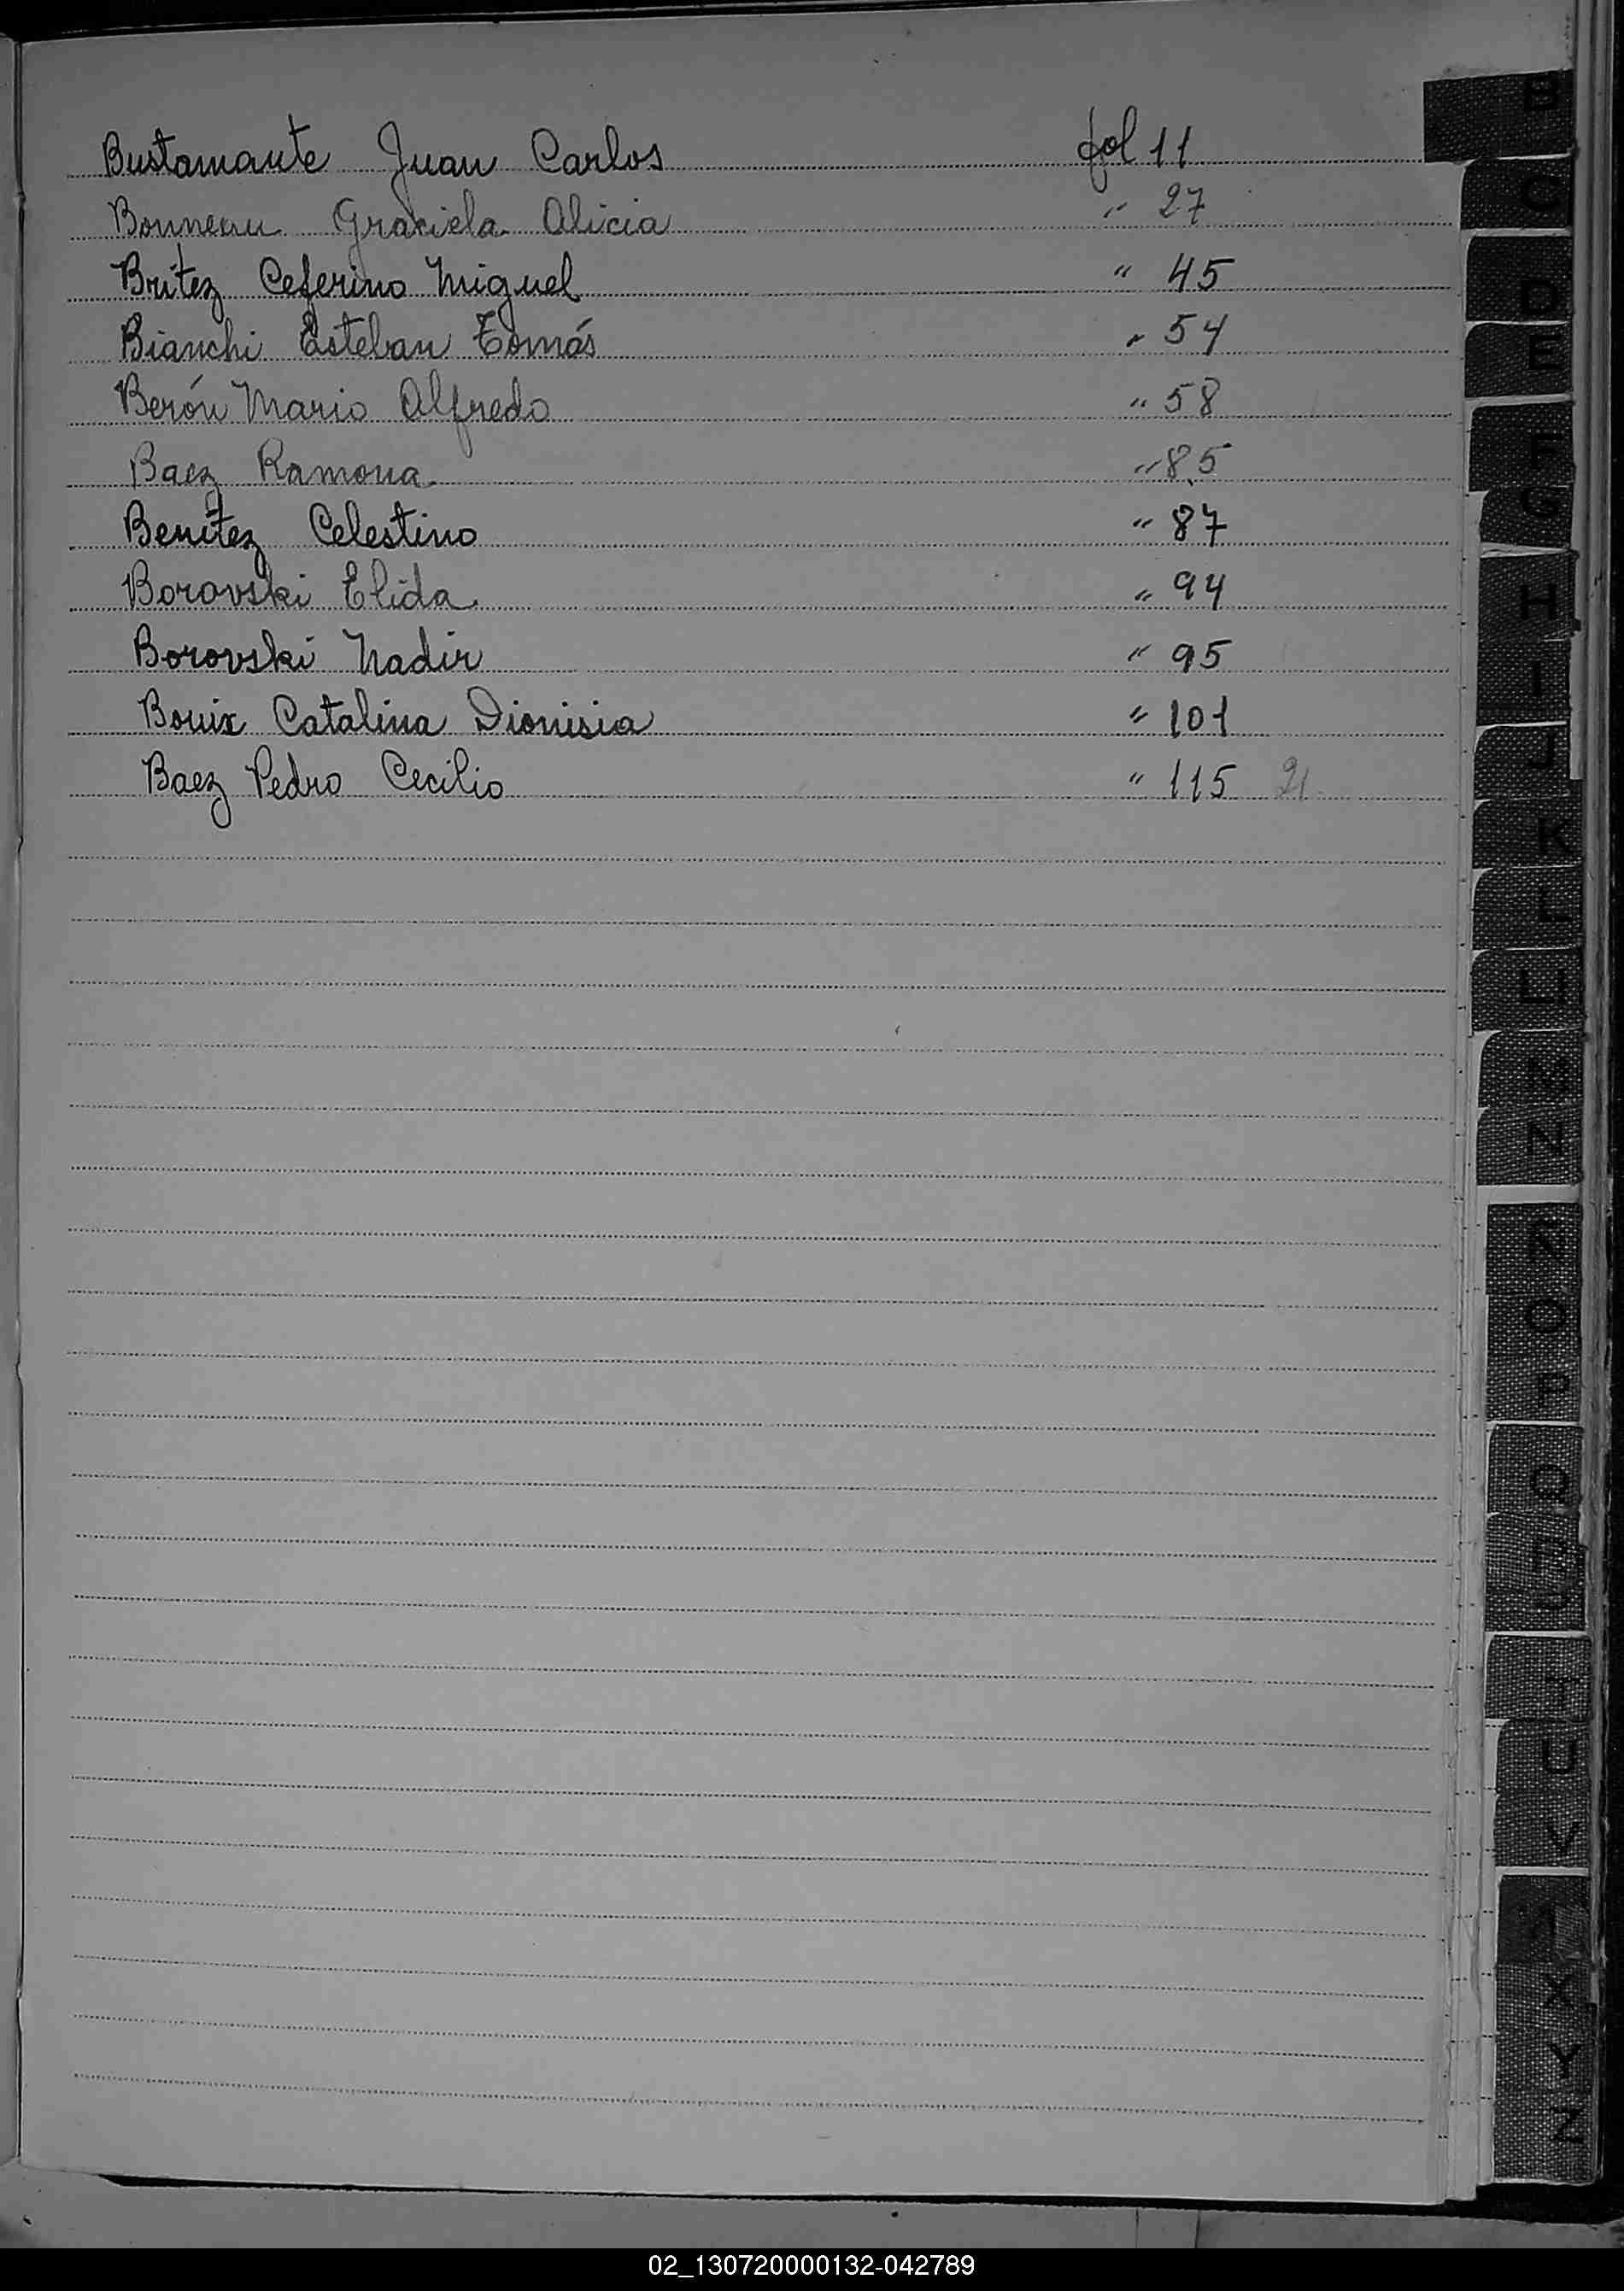 Bustamante Juan Carlos fol 11
Bonneau Graciela Alicia " 27
Britez Ceferino Miguel " 45
Bianchi Esteban Tomás " 54
Berón Mario Alfredo " 58
Baez Ramona " 85
Benítez Celestino " 87
Borovski Elida " 94
Borovski Nadir " 95
Bouix Catalina Dionisia " 101
Baez Pedro Cecilio " 115 21
B
C
D
E
F
G
H
I
J
K
L
LL
M
N
Ñ
O
P
Q
T
U
V
X
Y
Z
02_130720000132-042789